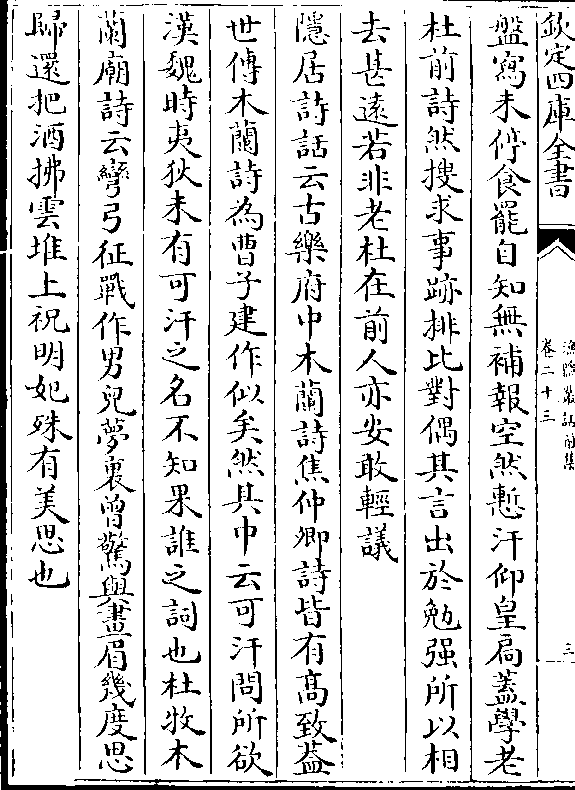 欽定四庫全書
漁隱叢話前集
卷二十三
三
盤寫未停食罷自知無補報空然慙汗仰皇扃蓋學老
杜前詩然搜求事跡排比對偶其言出於勉强所以相
去甚遠若非老杜在前人亦安敢輕議
隱居詩話云古樂府中木蘭詩焦仲卿詩皆有髙致蓋
世傳木蘭詩為曹子建作似矣然其中云可汗問所欲
漢魏時夷狄未有可汗之名不知果誰之詞也杜牧木
蘭廟詩云彎弓征戰作男兒夢裏曾驚與畫眉幾度思
歸還把酒拂雲堆上祝明妃殊有美思也